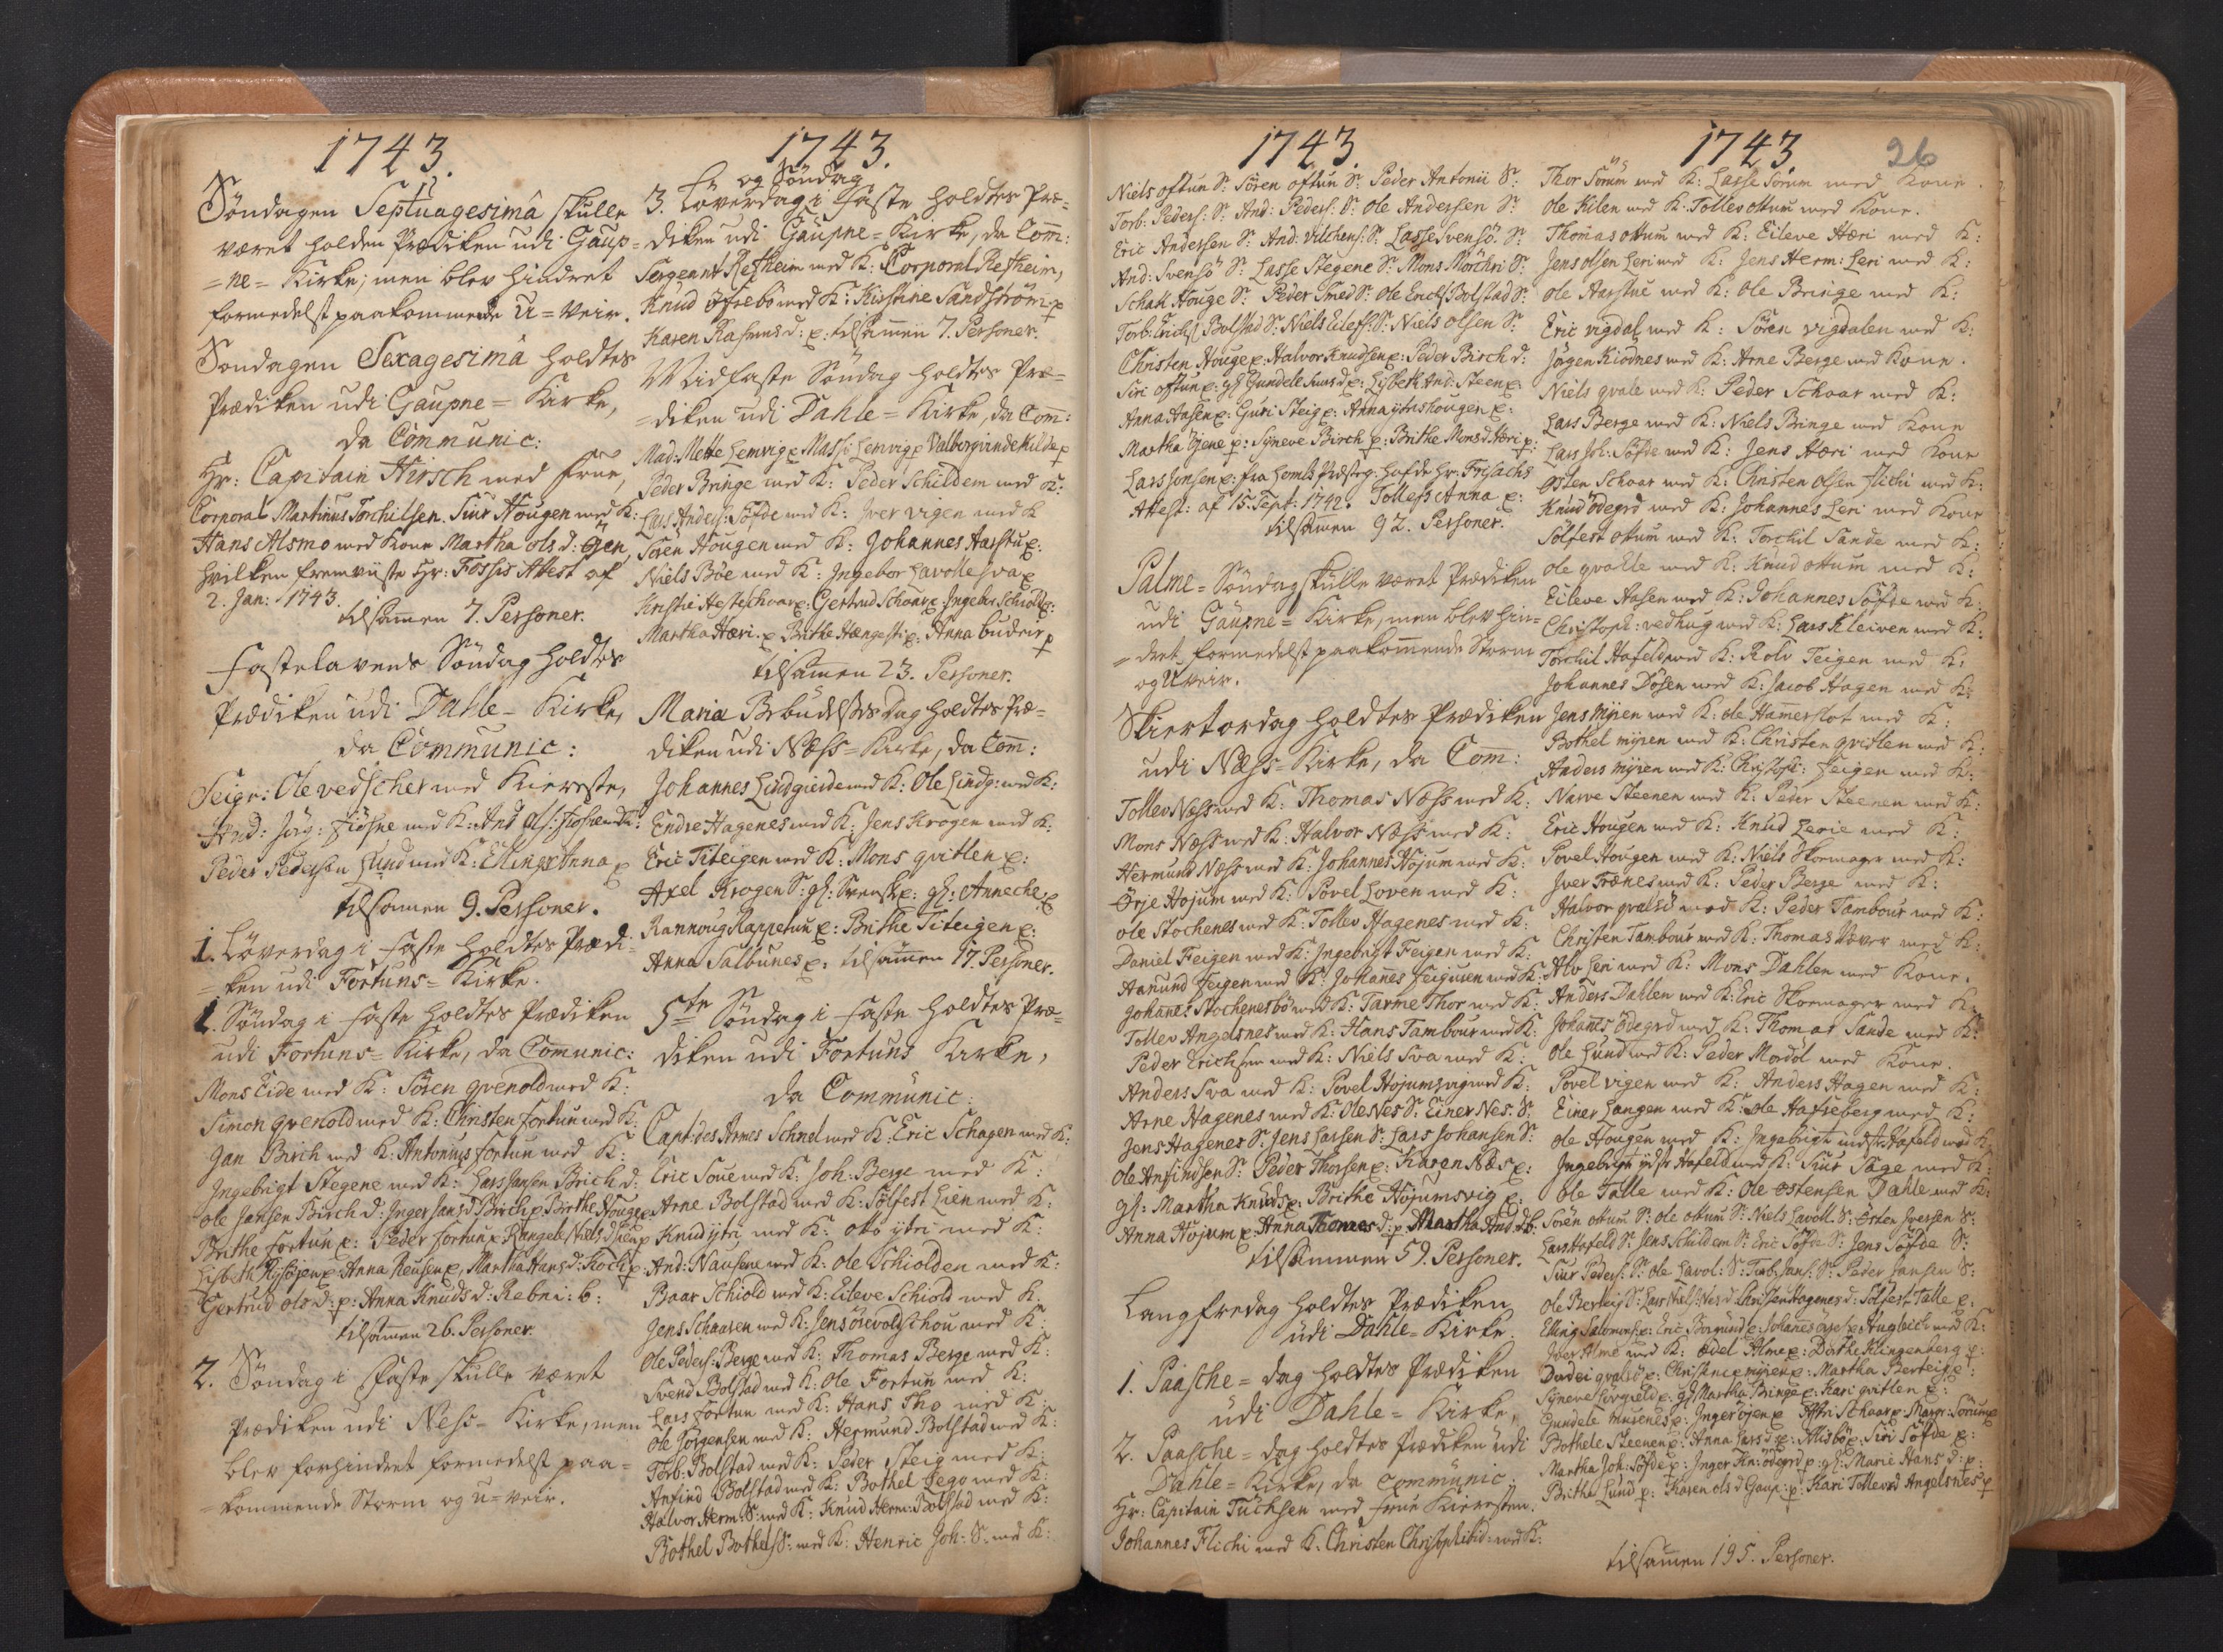 1743.
Söndagen Septuagesimâ skulle
været holden Prædiken udi Gaup-
=ne= Kirke, men blev hindret
formedelst paakommende U=veir.
Söndagen Sexagesimâ holdtes
Prædiken udi Gaupne= Kirke,
da Communic:
Hr: Capitain Hirsch med Frue,
Corporal Martinus Torchilsen. Siur Hougen med K:
Hans Alsmo med Kone Martha ols d:
hvilken fremviiste Hr: Fosses Attest af
2. Jan: 1743.
tilsamen 7. Personer.
Fastelavens Söndag holdtes
Prædiken udi Dahle= Kirke,
da Communic:
Seigr: Ole vedscher med Kiereste,
And: Jörg: med K: And
Peder Pedersen Lund med K: Anna p
tilsamen 9. Personer.
1. Löverdag i Faste holdtes Prædi-
=ken udi Fortuns= Kirke.
1. Söndag i Faste holdtes Prædiken
udi Fortuns= Kirke, da Comunic:
Mons Eide med K: Sören qvenold med K:
Simon qvenold med K: Christen Fortun med K:
Jan Birch med K: Antonius Fortun med K:
Ingebrigt Stegene med K: Lars Jansen Birch d:
Ole Jansen Birch d: Inger Jans d Birch p Birthe Houge p
Brithe Fortun p: Peder Fortun p Rangele Niels d
Lisbeth p Anna p, Martha Hans d:
Gertrud ols d: p: Anna Knuds d: Rebni: b:
tilsamen 26. Personer.
2. Söndag i Faste skulle været
Prædiken udi Ness= Kirke, men
blev forhindret formedelst paa=
=kommende Storm og u=veir.
1743.
Lö og Söndag
3. Löverdag i Faste holdtes Præ=
diken udi Gaupne= Kirke, da Com:
Sergeant Refheim med K: Corporal Refheim,
Knud öfrebö med K: Kirstine Sandström p
Karen Rasmus d: p: tilsamen 7. Personer.
Midfaste Söndag holdtes Præ=
=diken udi Dahle= Kirke, da Com:
Mad: Mette Lemvig p Massi Lemvig p Valborg
Peder Bringe med K: Peder Schildem med K:
Lars Anders: Söfde med K: Iver vigen med K
Sören Hougen med K: Johannes Aarstu p:
Niels Böe med K: Ingebor p
Kristi p: Gertrud Schoar p Ingebor Schiold p:
Martha Hæri p Brithe Hængesti p: Anna budeir p
tilsamen 23. Personer.
Mariæ Bebudelses dag holdtes Præ=
diken udi Næss= Kirke, da Com:
Johannes Lindgierde med K: Ole Lindg: med K:
Endre Hagenes med K: Jens Krogen med K:
Eric Titeigen med K: Mons qvitlen p:
Axel Krogen S: gl: Svensk p: gl: Anneche p
Rannoug Rappetun p: Brithe Titeigen p:
Anna Salbunes p: tilsamen 17. Personer.
5te Söndag i Faste holdtes Præ=
diken udi Fortuns Kirke,
da Communic:
Capt: des Armes Schnel med K: Eric Schagen med K:
Eric Soue med K: Joh: Berge med K:
Arne Bolstad med K: Sölfest Lien med K:
Knud ytri med K: otto ytri med K:
And: Nausene med K: Ole Schiolden med K:
Baar Schiold med K: Eileve Schiold med K.
Jens Schaaren med K: Jens med K:
Ole Peders: Berge med K: Thomas Berge med K:
Svend Bolstad med K: Ole Fortun med K:
Lars Fortun med K: Hans Tho med K
Ole Jörgensen med K: Hermund Bolstad med K:
Torb: Bolstad med K: Peder Steig med K:
Anfind Bolstad med K: Bothel Lego med K:
Halvor Herm: S: med K: Knud Herm: Bolstad med K:
Bothel Bothels S: med K: Henric Joh: S: med K:
1743.
Niels oftun S: Sören oftun S: Peder Antonii S:
Torb: Peders: S: And: Peders: S: Ole Andersen S:
Eric Andersen S: And: S: Lasse Svensö S:
And: Svensö S: Lasse Stegene S: Mons Mörchri S:
Schak Houge S: Peder Smed S: Ole Erichs Bolstad S:
Torb: Erichs Bolstad S: Niels Eilefs: S: Niels olsen S:
Christen Houge p: Halvor Knudsen p: Peder Birch d:
Siri oftun p: gl: Gundele d p: Lisbeth And: Steen p:
Anna Aasen p: Guri Steig p: Anna ytrishougen p:
Martha Öjene p: Syneve Birch p: Brithe Mons d Hæri p:
Lars Jonsen p: fra Homls Præsteg: hafde Hr: Frisachs
Attest: af 15. Sept: 1742. Tolless Anna p:
tilsamen 92. Personer.
Palme= Söndag skulle været Prædiken
udi Gaupne= Kirke, men blev hin=
=dret formedelst paakommende Storm
og Uveir.
Skiertordag holdtes Prædiken
udi Næss= Kirke, da Com:
Tollev Næss med K: Thomas Næss med K:
Mons Næss med K: Halvor Næss med K:
Hermund Næss med K: Johannes Höjum med K:
Örje Höjum med K: Povel Loven med K:
Ole Stochenes med K: Tollev Hagenes med K:
Daniel Feigen med K: Ingebrigt Feigen med K:
Aamund Feigen med K: Johanes med K:
Johanes Stochenesbö med K: Tarme Thor med K:
Tollev Angelsnes med K: Hans Tambour med K:
Peder Erichsen med K: Niels Sva med K:
Anders Sva med K: Povel Höjumsvig med K:
Arne Hagenes med K: Ole Nes S: Einer Nes: S:
Jens Hagenes S: Jens Larsen S: Lars Johansen S:
Ole Anfindsen S: Peder Thorsen p: Karen Næs p:
gl: Martha Knuds p: Brithe Höjumsvig p:
Anna Höjum p: Anna Thomes d: p: Martha And: d b:
tilsammen 59. Personer.
Langfredag holdtes Prædiken
udi Dahle= Kirke.
1. Paasche= dag holdtes Prædiken
udi Dahle= Kirke,
2. Paasche= dag holdtes Prædiken udi
Dahle= Kirke, da Communic:
Hr: Capitain Tuchsen med Frue Kieresten.
Johannes Flichi med K: Christen Christophi ibid: med K:
1743. 26
Thor Sörum med K: Lasse Sörum med Kone.
Ole Kilen med K: Tollev ottum med Kone.
Thomas ottum med K: Eileve Hæri med K:
Jens olsen Leri med K: Jens Herm: Leri med K:
Ole Aarstue med K: Ole Bringe med K:
Eric vigdal med K: Sören vigdalen med K:
Jörgen Kiödnes med K: Arne Berge med Kone.
Niels qvale med K: Peder Schoar med K:
Lars Berge med K: Niels Bringe med Kone
Lars Jol: Söfde med K: Jens Hæri med Kone
Östen Schoar med K: Christen olsen Flichi med K:
Knud ödegrd med K: Johannes Leri med Kone
Solfest ottum med K: Torchil Sande med K:
Ole qvalle med K: Knud ottum med K:
Eileve Aasen med K: Johannes Söfde med K:
Christoph: vedhug med K: Lars Kleiven med K:
Torchil Hafeld med K: Rolv Teigen med K:
Johannes Dösen med K: Jacob Hagen med K:
Jens Myren med K: Ole Hamerslot med K:
Bothel myren med K: Christen qvitlen med K:
Anders myren med K: Christoph: Feigen med K:
Narve Steenen med K: Peder Steenen med K:
Eric Hougen med K: Knud Lerie med K:
Povel Hougen med K: Niels Skomager med K:
Iver Frænes med K: Peder Berge med K:
Halvor qvalsö med K: Peder Tambour med K:
Christen Tambour med K: Thomas Væver med K:
Alv Leri med K: Mons Dahlen med Kone.
Anders Dahlen med K: Eric Skomager med K:
Johanes ödegrd med K: Thomas Sande med K:
Ole Lund med K: Peder Mordöl med Kone.
Povel vigen med K: Anders Hagen med K:
Einer Langen med K: Ole Hafseberg med K:
Ole Hougen med K: Ingebrigt Hafeld med K:
Ingebrigt ydst Hafeld med K: Siur Tage med K:
Ole Talle med K: Ole Östensen Dahle med K:
Sören ottum S: Ole ottum S: Niels Lavoll: S: Östen Iversen S:
Lars Hafeld S: Jens Schildem S: Eric Söfde S: Jens Söfde S:
Siur Peders: S: Ole Lavol: S: Torb: Jans: S: Peder Jansen S:
Ole Berteig S: Lars Niels: Nes d Christen Hagenes d: Solfest Talle p:
Elling Salomons: p: Eric Borgund p: Johanes med K:
Iver Alme med K: Ædel Alme p: Dorthe Klingenberg p:
Durdei qvalsö p: Christence myren p: Martha Berteig p:
Syneve p: gl: Martha Bringe p: Kari qvitlen p:
Gundele Musenes p: Inger öjen p Astri Schoar p: Margr: Sörum p
Bothele Steenen p: Anna Lars d p: p: Siri Söfde p:
Martha Joh: Söfde p: Inger Kn: ödegrd p: gl: Marie Hans d: p:
Brithe Lund p: Karen ols d Gaup: p: Kari Tollevs d Angelsnes p
tilsamen 195. Personer.